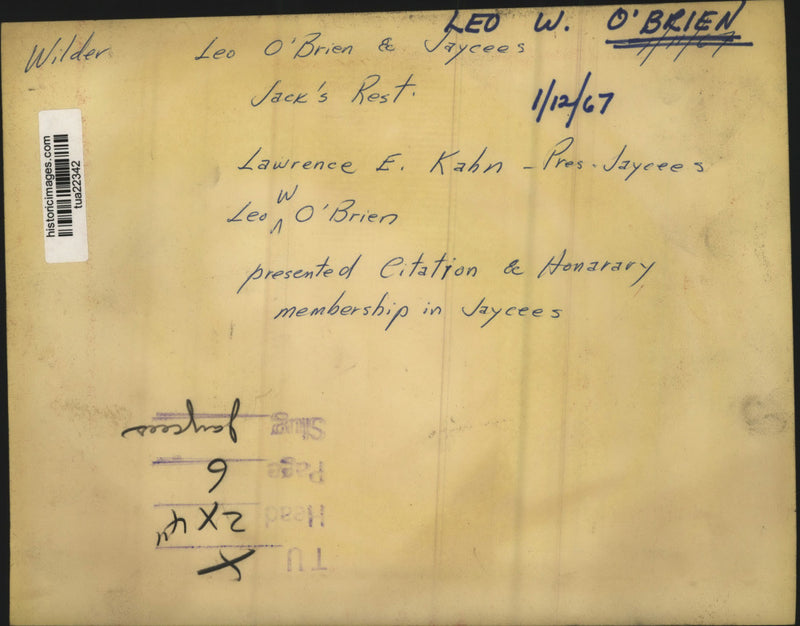 LEO W. O'BRIEN
Wilder Leo O'Brien & Jaycees
Jack's Rest. 1/12/67
Lawrence E. Kahn - Pres - Jaycees
Leo W O'Brien
presented Citation & Honarary
membership in Jaycees
historicimages.com
tua22342
TU X
Head 2 X 4"
Page 6
Slug Jaycees